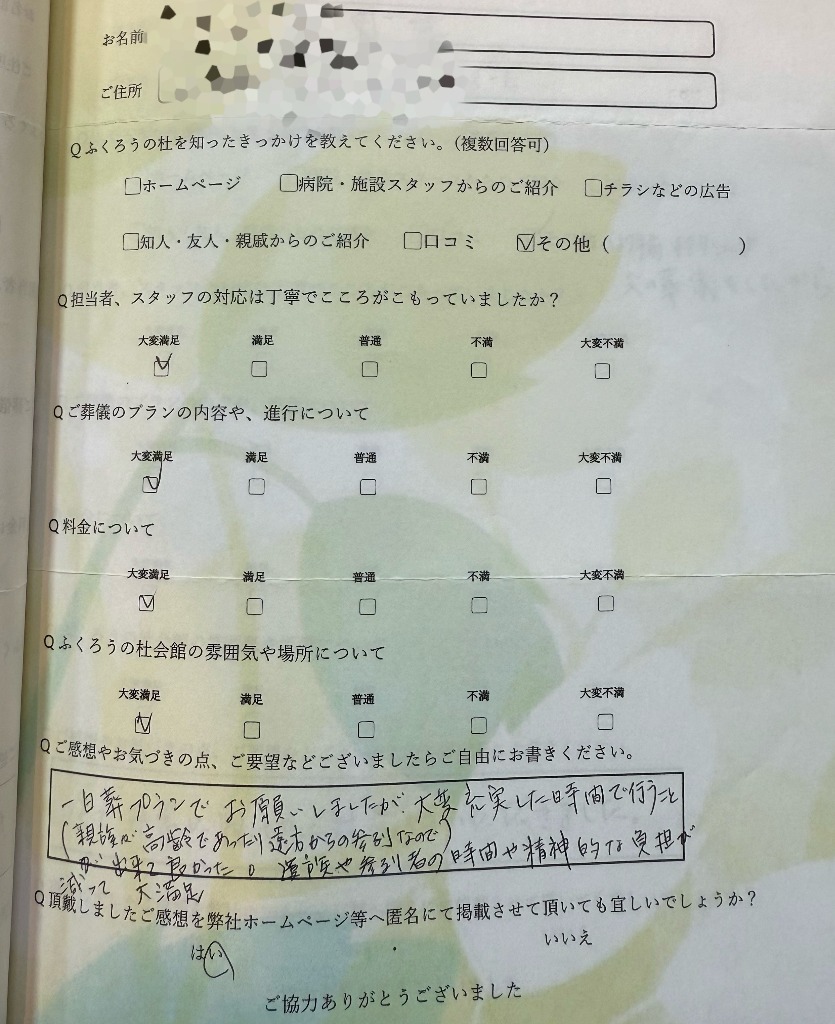 お名前
ご住所
Qふくろうの杜を知ったきっかけを教えてください。(複数回答可)
ホームページ 病院・施設スタッフからのご紹介 チラシなどの広告
知人・友人・親戚からのご紹介 口コミ その他( )
Q担当者、スタッフの対応は丁寧でこころがこもっていましたか?
大変満足 満足 普通 不満 大変不満
Qご葬儀のプランの内容や、進行について
大変満足 満足 普通 不満 大変不満
Q料金について
大変満足 満足 普通 不満 大変不満
Qふくろうの杜会館の雰囲気や場所について
大変満足 満足 普通 不満 大変不満
Qご感想やお気づきの点、ご要望などございましたらご自由にお書きください。
一日葬プランでお願いしましたが、大変充実した時間で行うこと
(親族が高齢であったり遠方からの参列なので)
が出来て良かった。遺族や参列者の時間や精神的な負担が
減って 大満足
Q頂戴しましたご感想を弊社ホームページ等へ匿名にて掲載させて頂いても宜しいでしょうか?
はい いいえ
ご協力ありがとうございました